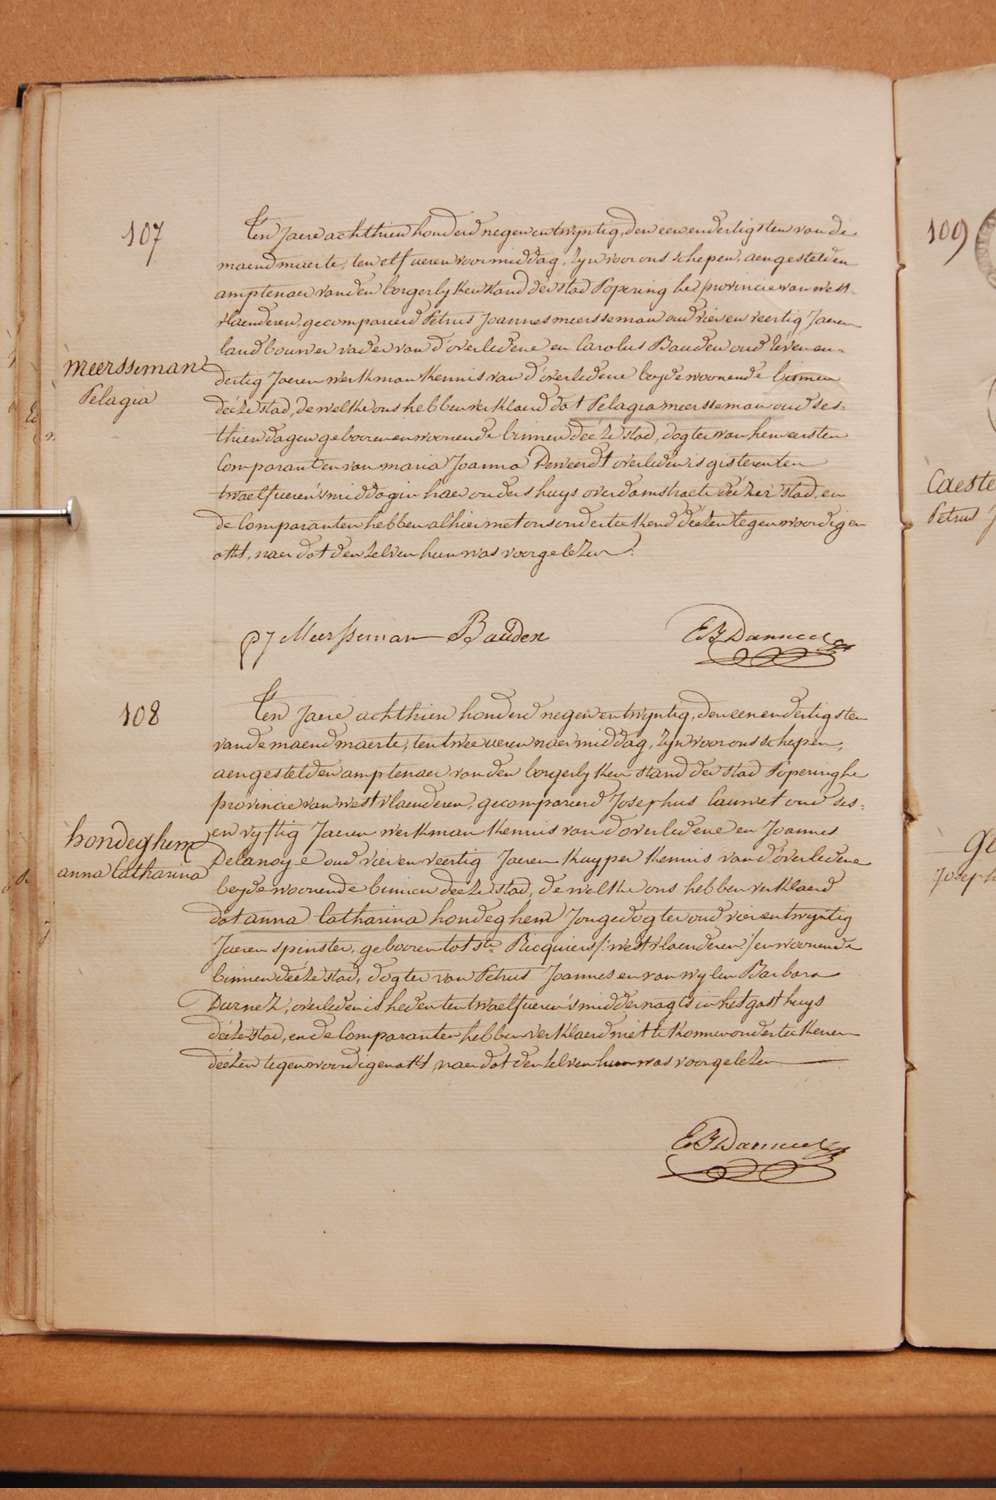 107
Ten Jaere achthien honderd negen en twyntig, den een en dertigsten van de
maend maerte, ten elf ueren voormiddag, zyn voor ons schepen, aengestelden
amptenaer van den borgerlyken stand der stad Poperinghe, provincie van west-
vlaenderen, gecompareerd Petrus Joannes meersseman oud vier en veertig Jaeren
landbouwer vader van d'overledene en Carolus Bauden oud zeven en-
dertig Jaeren werkman kennis van d'overledene beyde woonende binnen
deéze stad, de welke ons hebben verklaerd dat Pelagia meersseman oud ses-
thien dagen gebooren en woonende binnen deéze stad, dogter van hem eersten
Comparant en van maria Joanna Deweerdt overleden is gisteren ten
twaelf ueren 's middag in haer ouders huys overdamstraete deézer stad, en
de Comparanten hebben alhier met ons onderteekend deézen tegenwoordigen
akt, naer dat den zelven hun was voorgelezen.
meersseman
Pelagia
PJ Meersseman Bauden
108
Ten Jaere achthien honderd negen en twyntig, den een en dertigsten
van de maend maerte, ten twee ueren naermiddag, zyn voor ons schepen,
aengestelden amptenaer van den borgerlyken stand der stad Poperinghe
provincie van westvlaenderen, gecompareerd Josephus Cauwet oud ses-
en vyftig Jaeren werkman kennis van d'overledene en Joannes
Delanoye oud vier en veertig Jaeren kuyper kennis van d'overledene
beyde woonende binnen deéze stad, de welke ons hebben verklaerd
dat anna Catharina hondeghem Jongedogter oud vier en twyntig
Jaeren spinster, gebooren tot ste. Ricquiers /:westvlaenderen:/ en woonende
binnen deéze stad, dogter van Petrus Joannes en van wylen Barbara
Durnez, overleden is heden ten twaelf ueren 's middernagts in het gasthuys
deéze stad, en de Comparanten hebben verklaerd niet te konnen onderteekenen
deézen tegenwoordigen akt, naer dat den zelven hun was voorgelezen
hondeghem
anna Catharina
109
Petrus J
Joseph